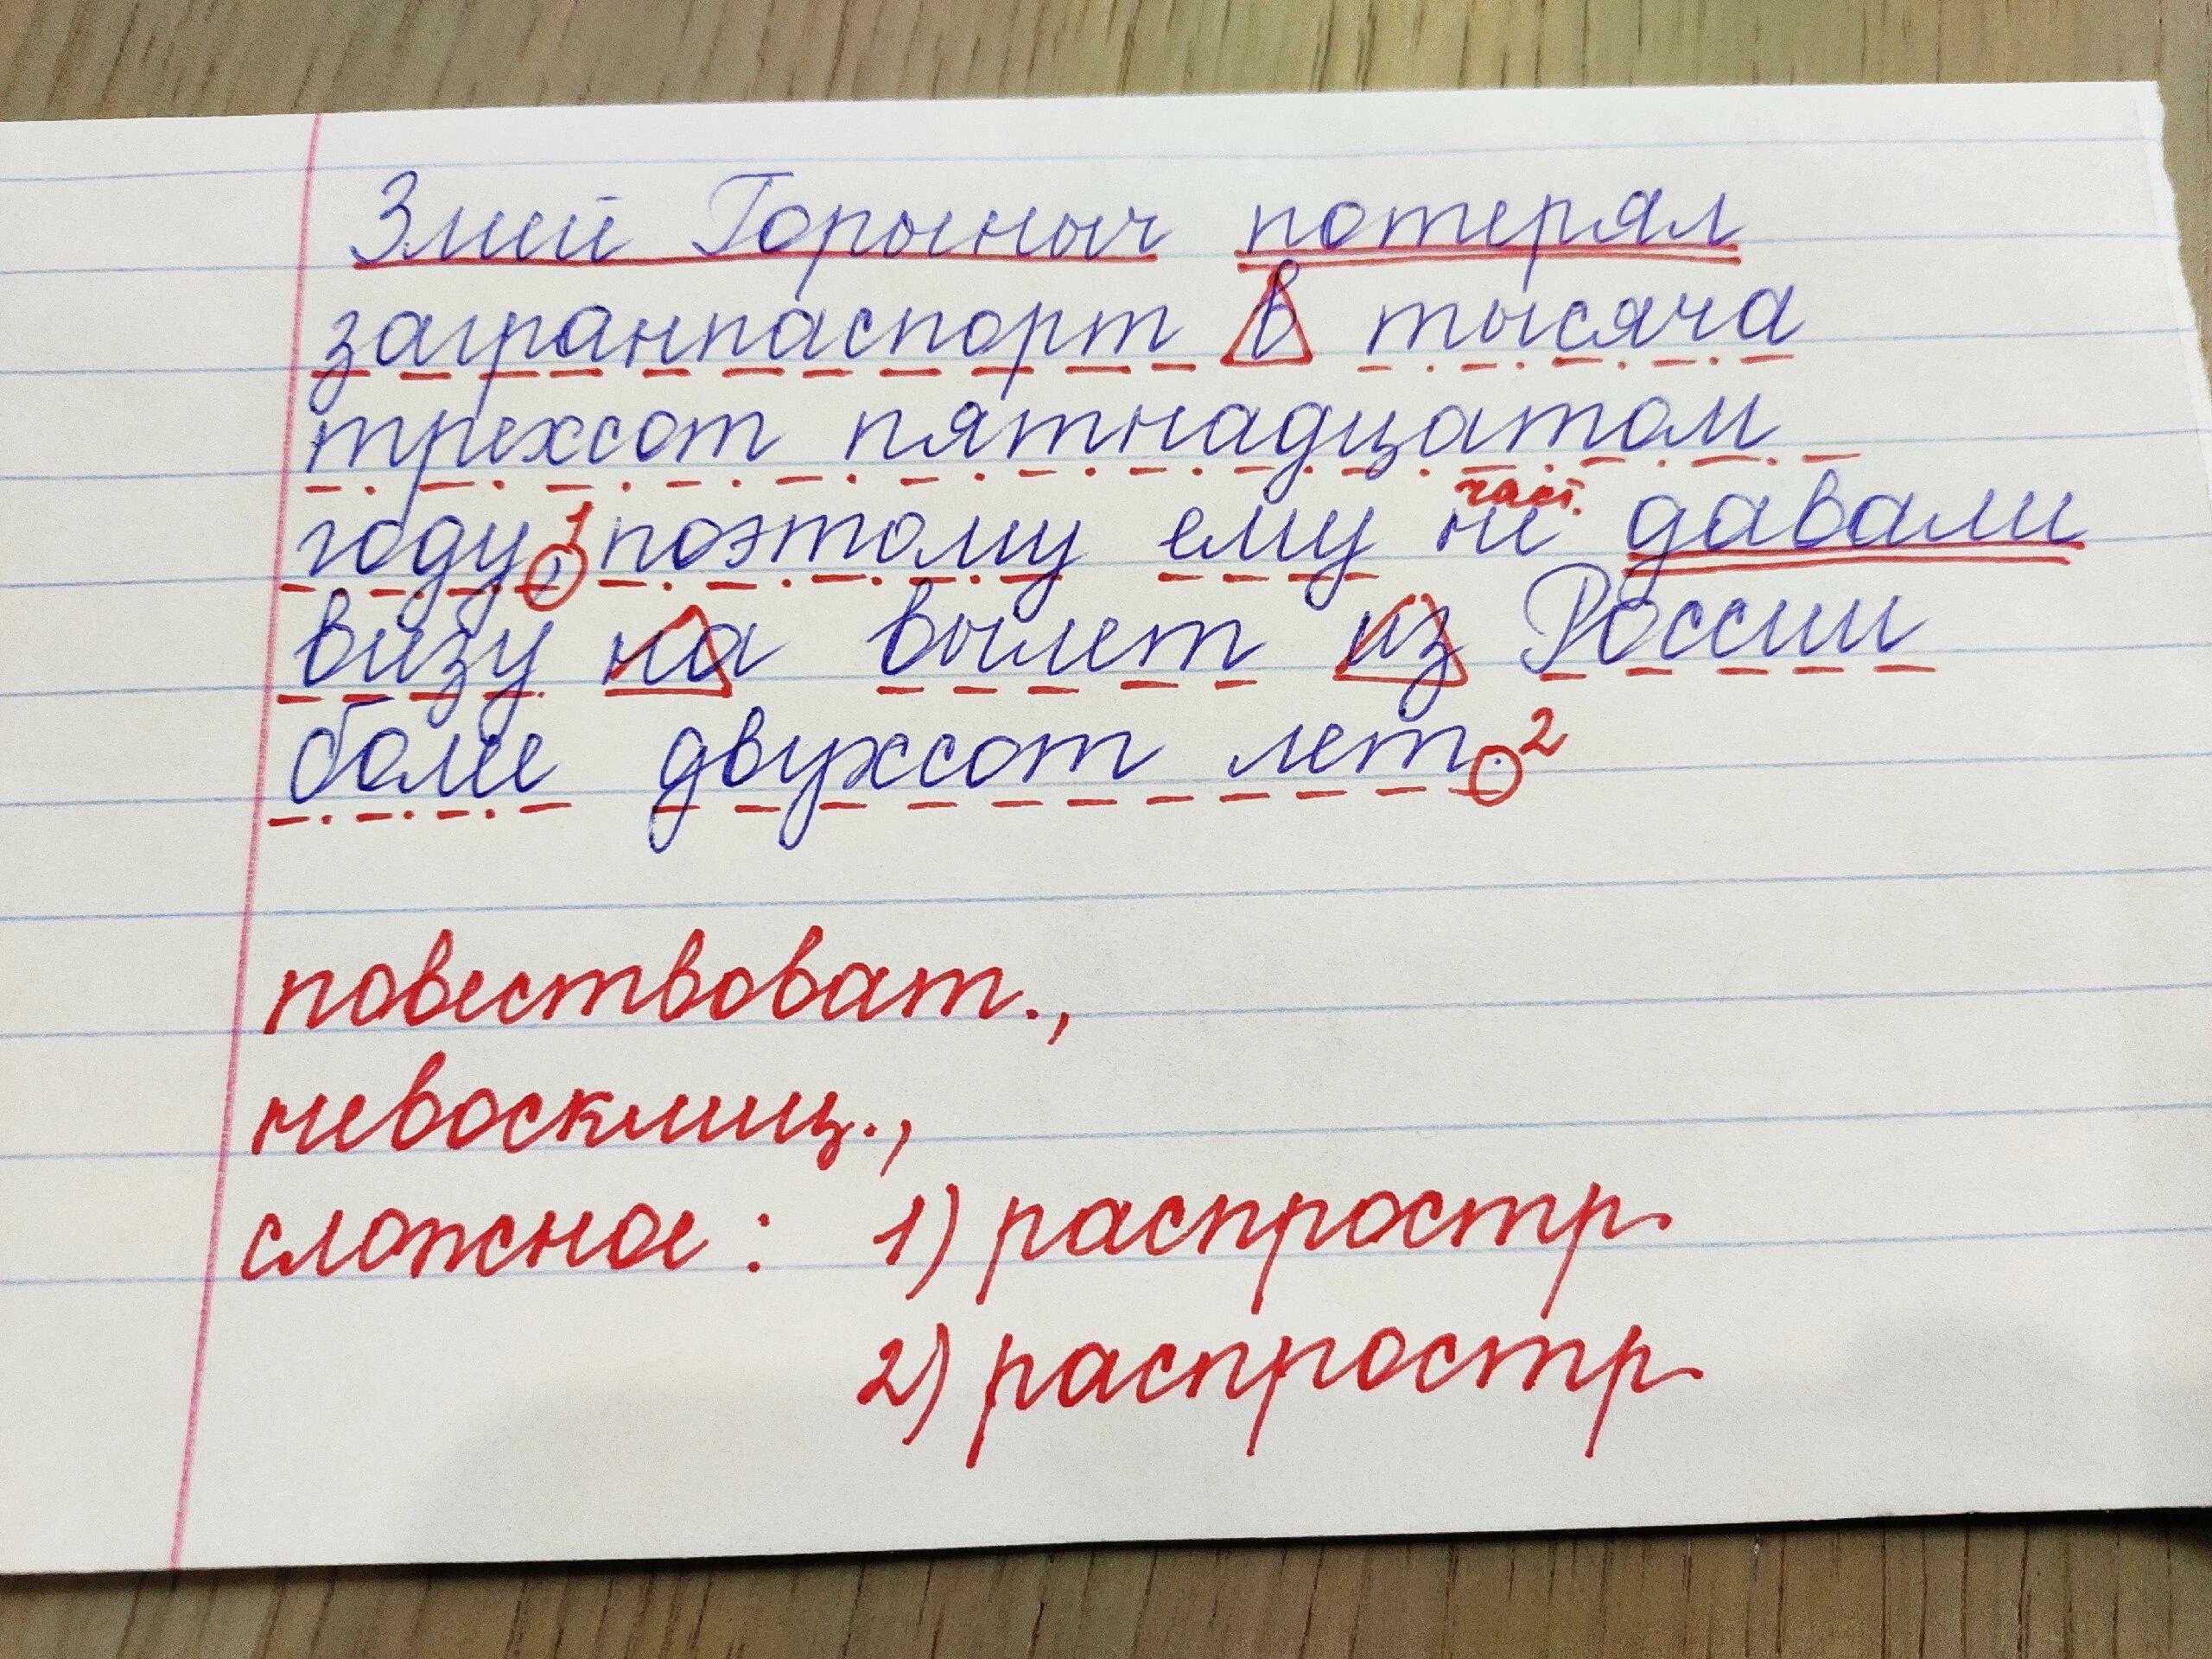 Змей Горыныч потерял
загранпаспорт в тысяча
трехсот пятнадцатом
част.
году, 1 поэтому ему не давали
визу на вылет из России
более двухсот лет. 2
повествоват.,
невосклиц.,
сложное: 1) распростр.
2) распростр.